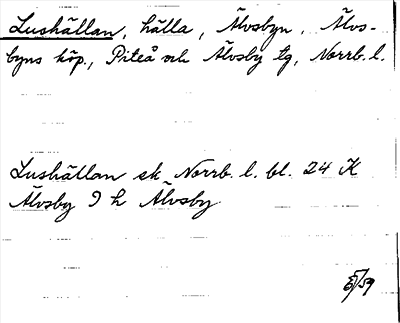 Lushällan, hälla, Älvsbyn, Älvs-
byns köp., Piteå och Älvsby tg, Norrb. l.
Lushällan ek Norrb. l. bl. 24 K
Älvsby 9 h Älvsby
/59